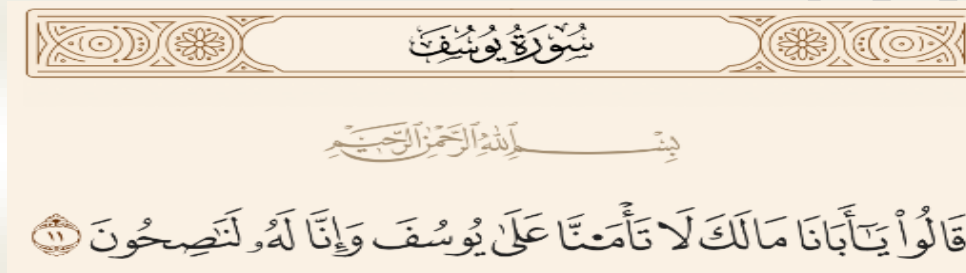 سُورَةُ يُوسُفَ
بِسْمِ ٱللَّهِ ٱلرَّحْمَٰنِ ٱلرَّحِيمِ
قَالُوا۟ يَـٰٓأَبَانَا مَا لَكَ لَا تَأْمَ۫نَّا عَلَىٰ يُوسُفَ وَإِنَّا لَهُۥ لَنَـٰصِحُونَ ١١